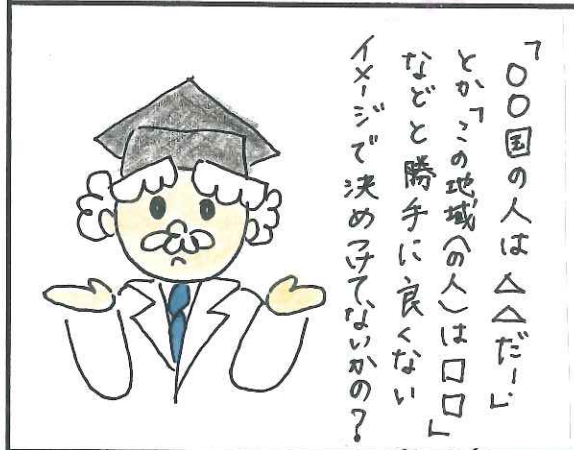 「〇〇国の人は△△だー!」
とか「この地域への人)は□□」
などと勝手に良くない
イメージで決めつけてないかの？